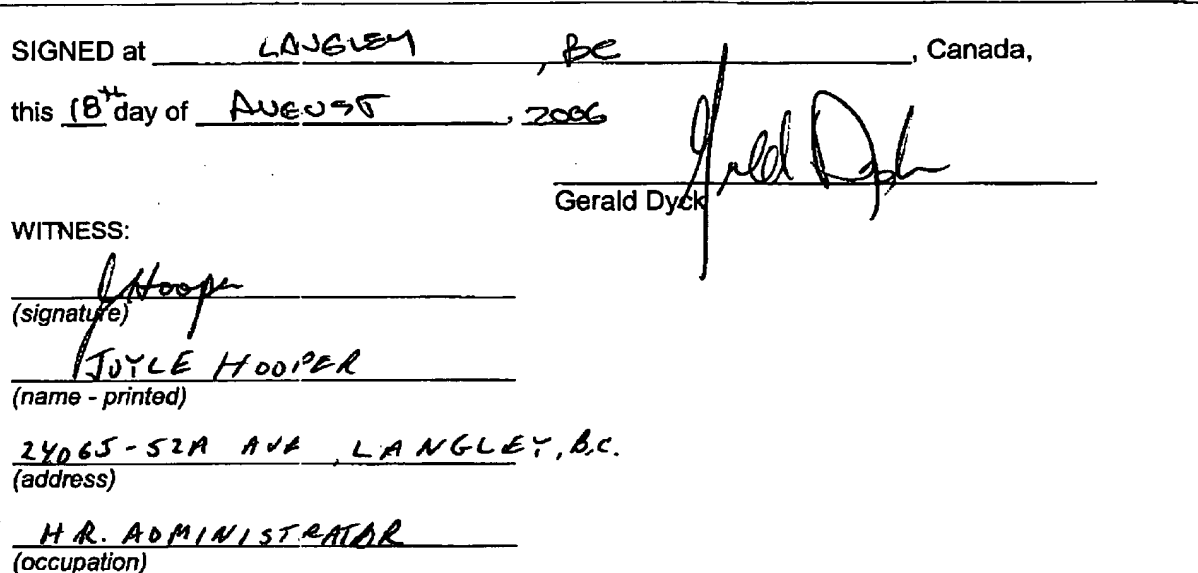 SIGNED at LANGLEY, BC, Canada,
this 18th day of AUGUST, 2006
Gerald Dyck
Gerald Dyck
WITNESS:
J Hooper
(signature)
JOYCE HOOPER
(name - printed)
24065-52A AVE, LANGLEY, B.C.
(address)
H.R. ADMINISTRATOR
(occupation)